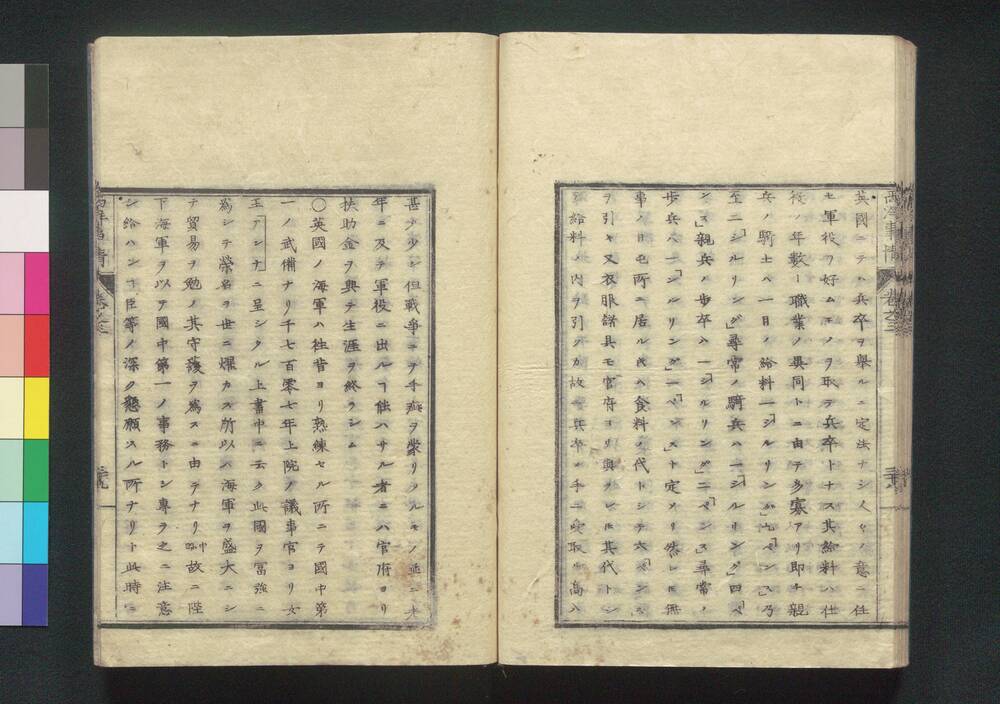 英國ニテハ兵卒ヲ舉ルニ定法ナシ人々ノ意ニ任
セ軍役ヲ好ムモノヲ取テ兵卒トナス其給料ハ仕
役ノ年數ト職業ノ異同トニ由テ多寡アリ即チ親
兵ノ騎士ハ一日ノ給料一「シルリング」「ペンス」乃
至二「シルリング」尋常ノ騎兵ハ一「シルリング」四「ペ
ンス」親兵ノ歩卒ハ一「シルリング」二「ペンス」尋常ノ
歩兵ハ一「シルリング」一「ペンス」ト定メリ然レ𪜈無
事ノ日屯所ニ居ル𪜈ハ食料ノ代トシテ六「ペンス」
ヲ引キ又衣服諸具モ官府ヨリ與フレハ其代トシ
テ給料ノ内ヲ引クカ故ニ兵卒ノ手ニ受取ル高ハ
甚少少シ但戰爭ニテ手疵ヲ蒙リタルモノ並ニ老
年ニ及テ軍役ニ出ルヿ能ハサル者ニハ官府ヨリ
扶助金ヲ與テ生涯ヲ終ラシム
○英國ノ海軍ハ徃昔ヨリ熟練セル所ニテ國中第
一ノ武備ナリ千七百零七年上院ノ議事官ヨリ女
王「アンナ」ニ呈シタル上書中ニ云ク此國ヲ冨強ニ
為シテ榮名ヲ世ニ燿カス所以ハ海軍ヲ盛大ニシ
テ貿易ヲ勉メ其守護ヲ為スニ由テナリ中略故ニ陛
下海軍ヲ以テ國中第一ノ事務トシ專ラ之ニ注意
シ給ハンヿ臣等ノ深ク懇願スル所ナリト此時ニ
西洋事情
卷之三